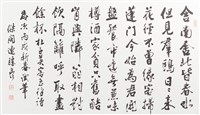 舍南舍北皆春水
但見群鷗日日來
花徑不曾緣客掃
蓬門今始為君開
盤飧市遠無兼味
樽酒家貧只舊
醅肯與鄰翁相對
飲隔籬呼取盡
餘杯